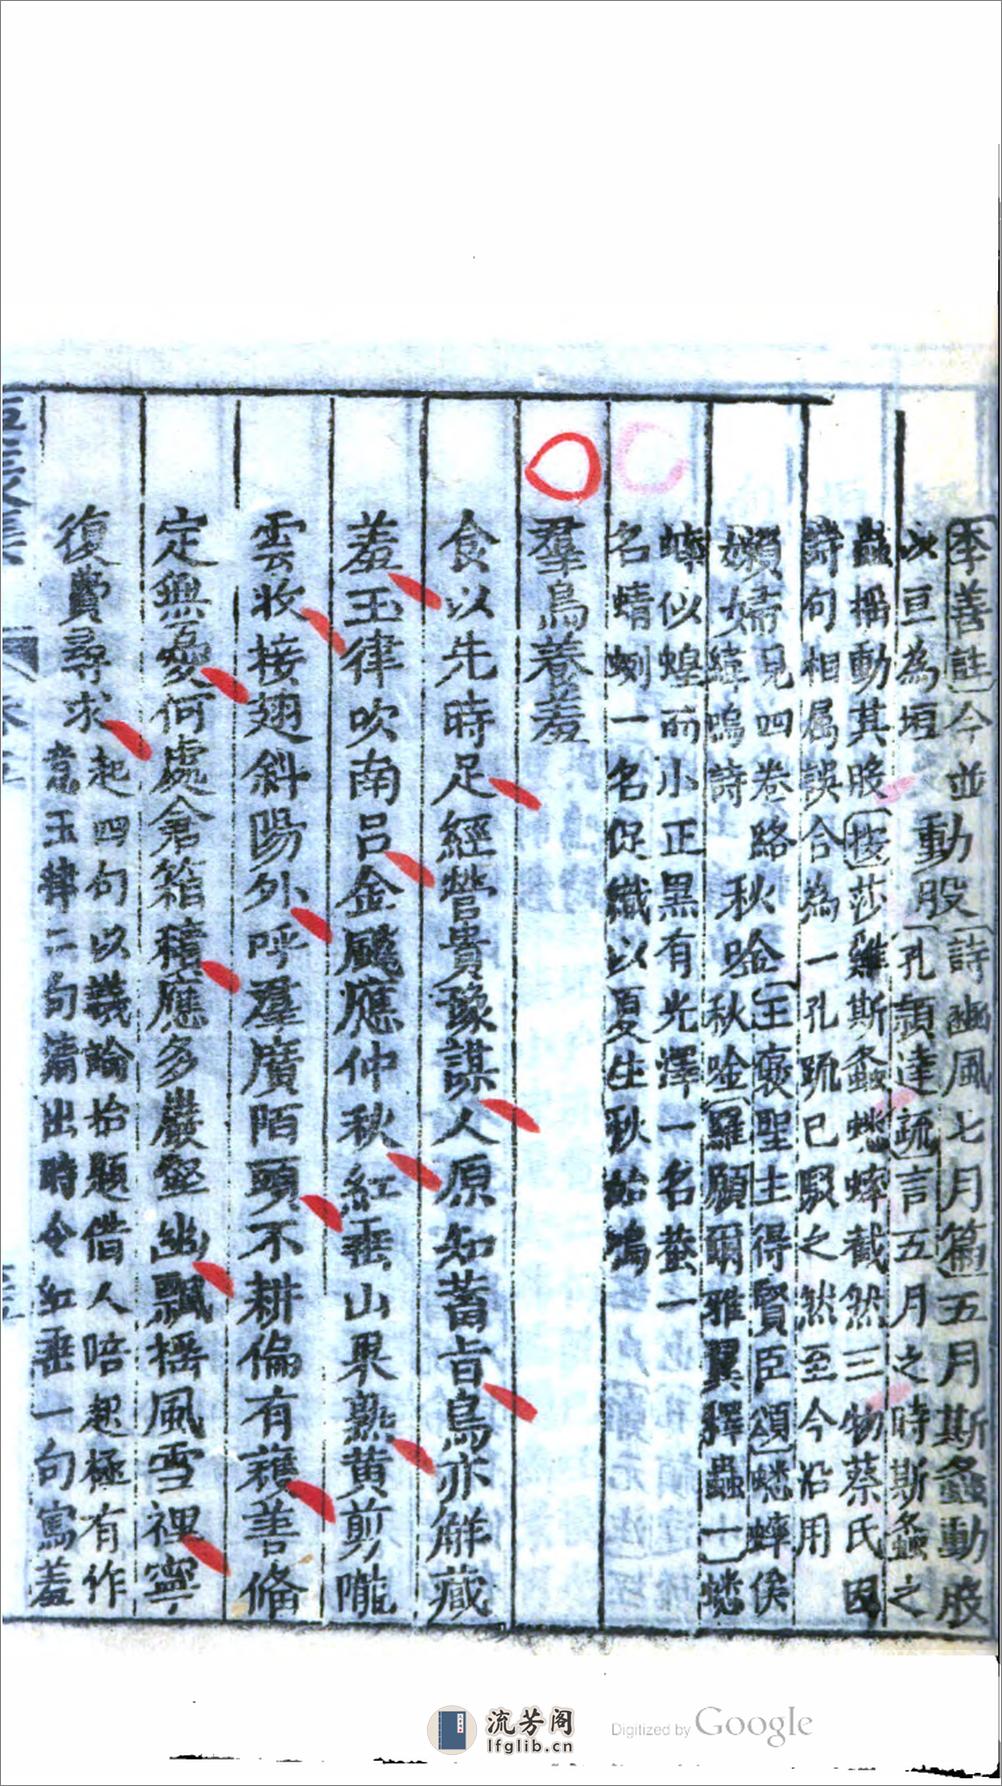 李善註今並動股詩豳風七月篇五月斯螽動股
以亘為垣
動股孔穎達疏言五月之時斯螽之
蟲搖動其股按莎雞斯螽蟋蟀截然三物蔡氏因
詩句相属誤合為一孔疏已駁之然至今沿用
嬾婦見四卷路秋金秋唫王襃聖主得賢臣頌蟋蟀俟
緯嗚詩秋唫羅願爾雅翼釋蟲一蟋
蟀似蝗而小正黒有光澤一名蛬一
名蜻蛚一名促織以夏生秋始鳴
羣鳥養羞
食以先時足經營貴豫謀人原知蓄旨鳥亦解藏
羞玉律吹南呂金飈應仲秋紅垂山果熟黄剪隴
雲收接翅斜陽外呼羣廣陌頭不耕倫有蓰善俻
定無憂何處倉箱積應多巖壑幽飄搖風雪裡寧
復費尋求起四句以議論拾題借人啗起極有作
意玉律二句清出時令紅垂一句寫羞